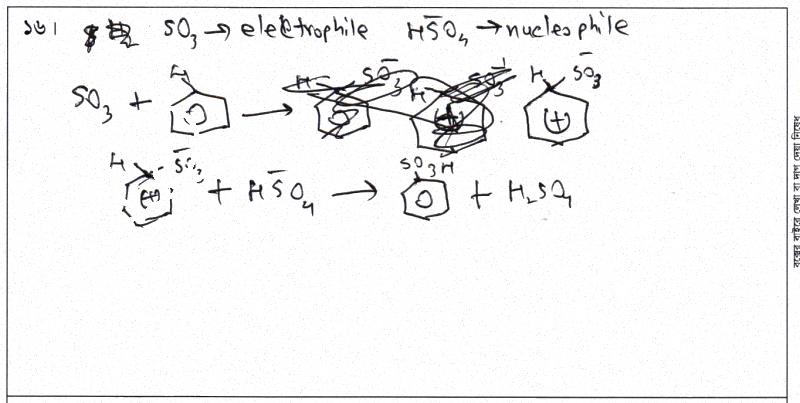 ১৬। SO₃ → electrophile HSO₄⁻ → nucleophile
SO₃ + H → H SO₃⁻ +
H SO₃⁻ + + HSO₄⁻ → SO₃H + H₂SO₄
বক্সের বাইরে লেখা বা দাগ দেয়া নিষেধ